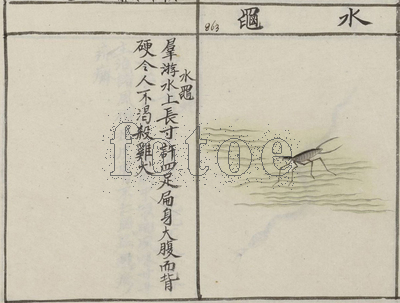 水黽
863
水黽
羣游水上長寸許四足扁身大腹而背
硬令人不渴殺雞犬
fotoe